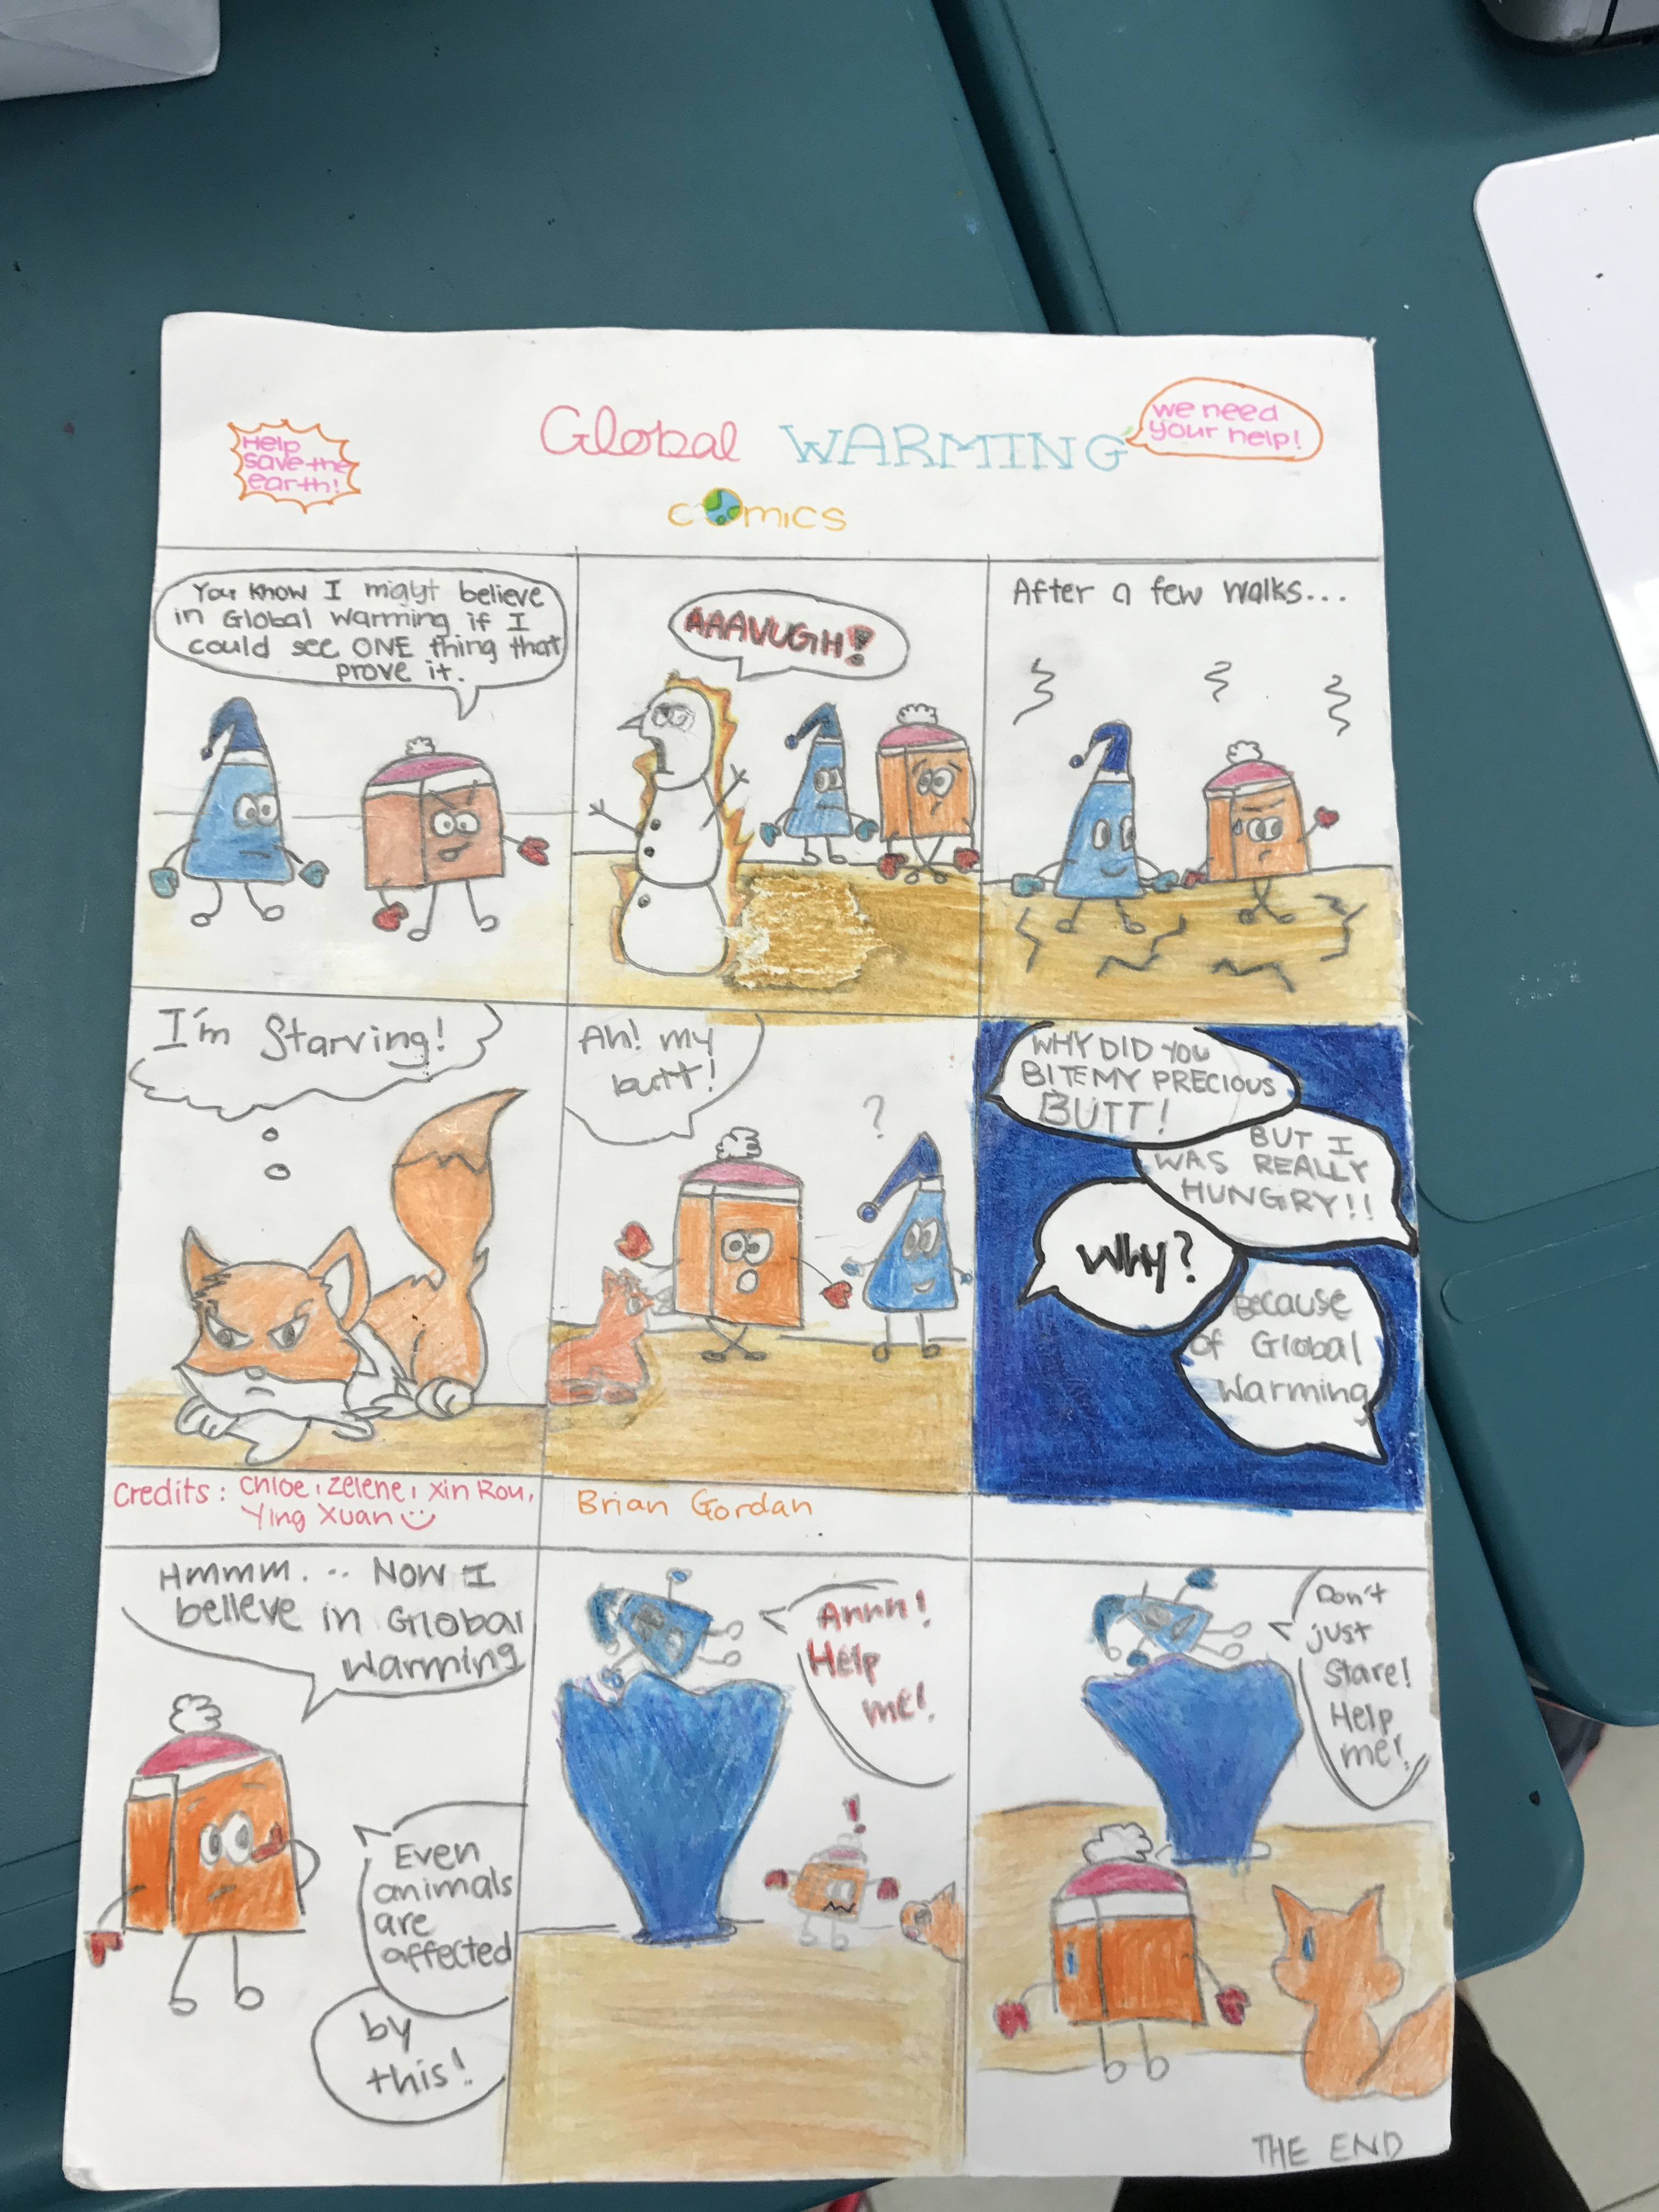 Help
save the
earth!
Global WARMING
we need
your help!
comics
You know I mayt believe
in Global warming if I
could see ONE thing that
prove it.
AAAVUGH!
After a few walks...
I'm Starving!
Ah! my
butt!
?
WHY DID YOU
BITE MY PRECIOUS
BUTT!
BUT I
WAS REALLY
HUNGRY!!
Why?
Because
of Global
Warming
Credits: Chloe, Zelene, Xin Rou,
Ying Xuan
Brian Gordan
Hmmm... Now I
believe in Global
Warming
Even
animals
are
affected
by
this!
Ahhh!
Help
me!
!
Don't
just
Stare!
Help
me!
THE END